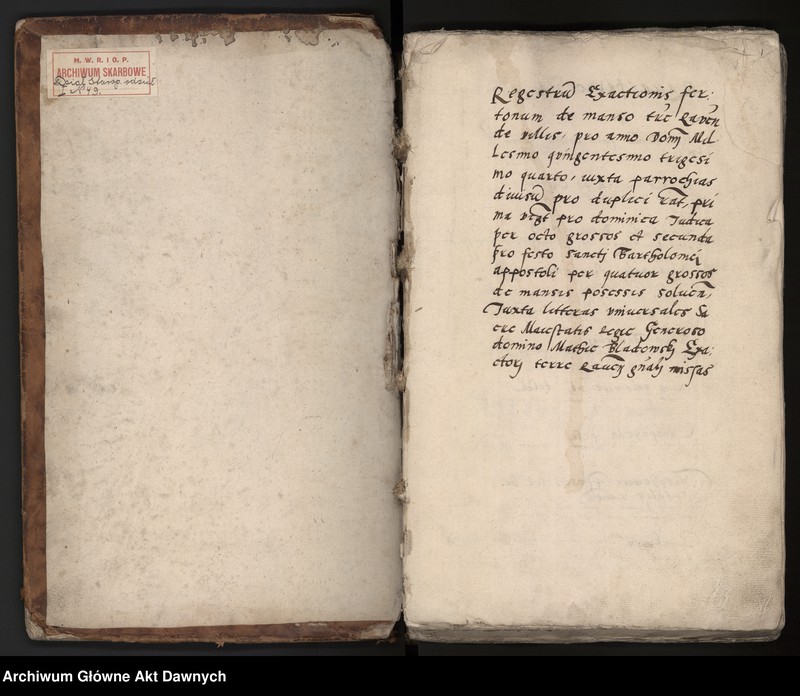 M. W. R. I O. P.
ARCHIWUM SKARBOWE
Dział Skarb.
I N 49.
Regestrũ Exactionis fer:
tonum de manso trẽ Raven
de villis, pro anno Domj Mil
Lesmo qvingentesmo trigesi
mo quarto, iuxta parrochias
divisũ pro duplici rat, pri
ma vigt pro dominica Iudica
per octo grossos et secunda
pro festo sanctj Bartholomei
appostoli per quatuor grossos
de mansis posessis soluen,
Iuxta litteras vniuersales Sa
cre Maiestatis regie Generoso
domino Mathie Bladowskj Exa:
ctorj terre Raveñ gñalj missas
Archiwum Główne Akt Dawnych